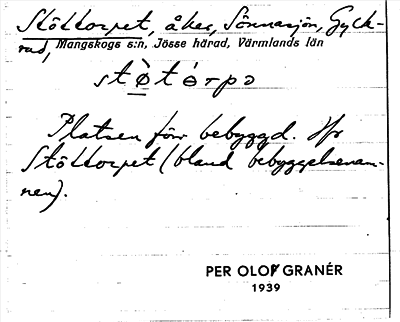 Stöttorpet, åker, Sönnasjön, Gyck-
rud,
Mangskogs s:n, Jösse härad, Värmlands län
Platsen förr bebyggd. Jfr
Stöttorpet (bland bebyggelsenam-
nen).
PER OLOF GRANÉR
1939